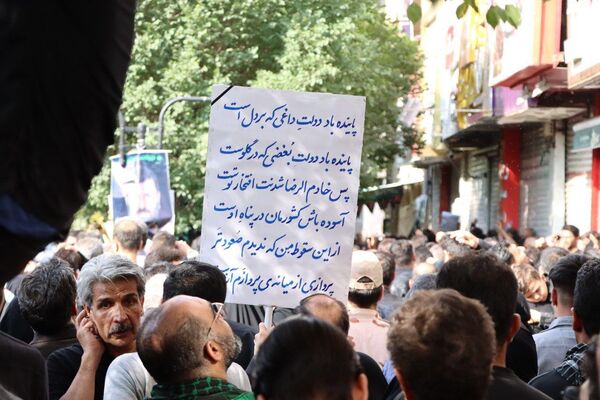 پاینده باد دولتِ داغی که بر دل است
پاینده باد دولت بغضی که در گلوست
پس خادم الرضا شدنت افتخار توست
آسوده باش کشورمان در پناه اوست
از این سقوط من که ندیدم صعودتر
پردازی از میانه‌ی پردازم